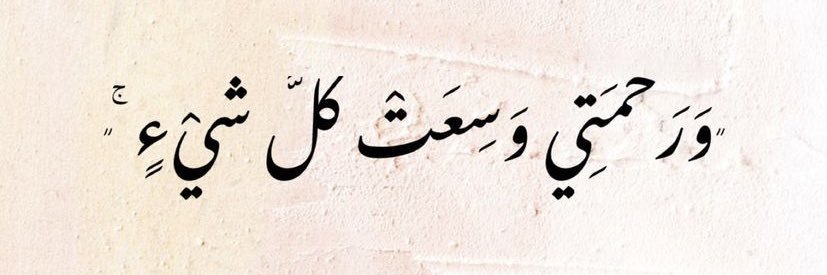 "وَرَحْمَتِي وَسِعَتْ كُلَّ شَيْءٍ ۚ"